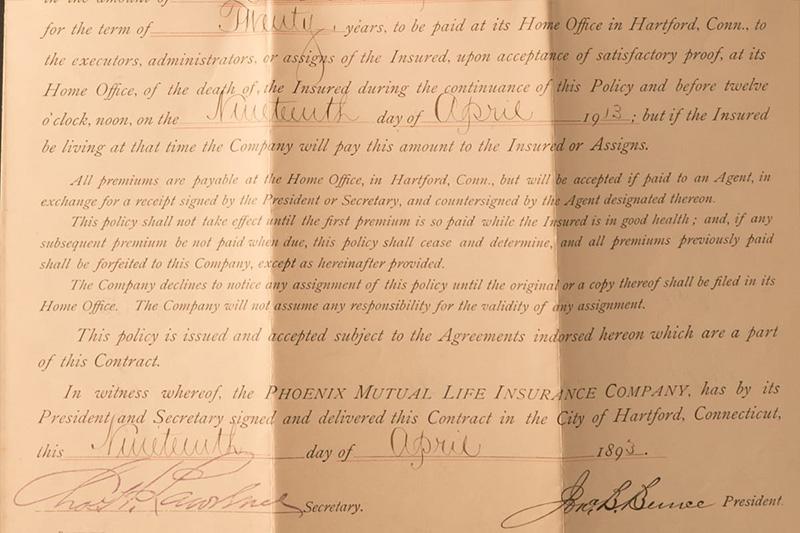 in the amount of
for the term of Twenty years, to be paid at its Home Office in Hartford, Conn., to
the executors, administrators, or assigns of the Insured, upon acceptance of satisfactory proof, at its
Home Office, of the death of, the Insured during the continuance of this Policy and before twelve
o'clock, noon, on the Nineteenth day of April 1913; but if the Insured
be living at that time the Company will pay this amount to the Insured or Assigns.
All premiums are payable at the Home Office, in Hartford, Conn., but will be accepted if paid to an Agent, in
exchange for a receipt signed by the President or Secretary, and countersigned by the Agent designated thereon.
This policy shall not take effect until the first premium is so paid while the Insured is in good health; and, if any
subsequent premium be not paid when due, this policy shall cease and determine, and all premiums previously paid
shall be forfeited to this Company, except as hereinafter provided.
The Company declines to notice any assignment of this policy until the original or a copy thereof shall be filed in its
Home Office. The Company will not assume any responsibility for the validity of any assignment.
This policy is issued and accepted subject to the Agreements indorsed hereon which are a part
of this Contract.
In witness whereof, the PHOENIX MUTUAL LIFE INSURANCE COMPANY, has by its
President and Secretary signed and delivered this Contract in the City of Hartford, Connecticut,
this Nineteenth day of April 1893.
Secretary. Jona. B. Bunce President.